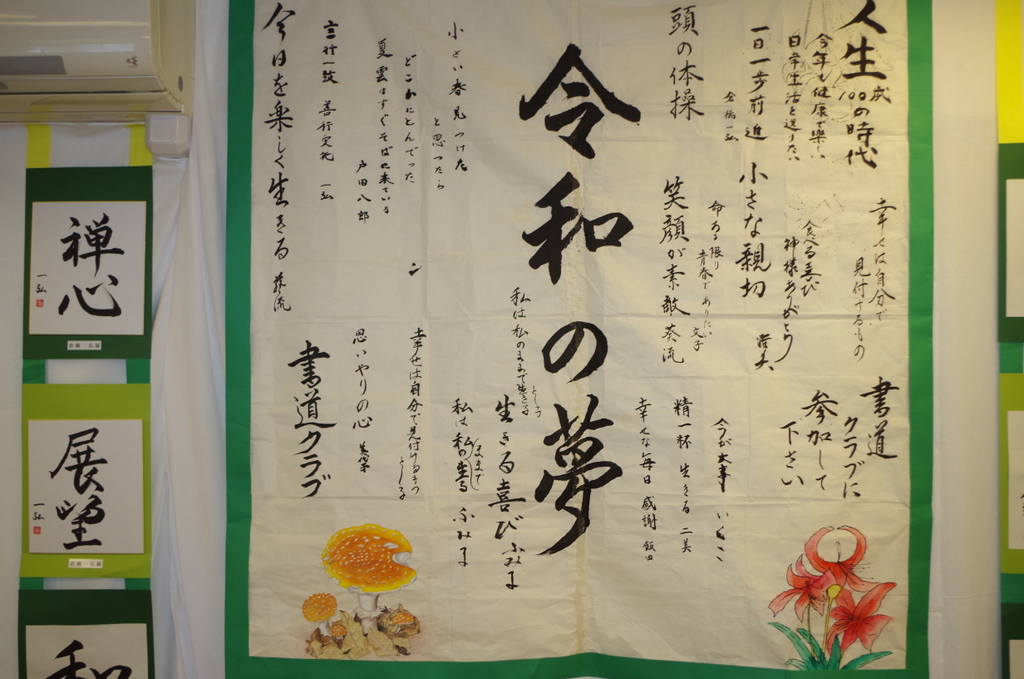 人生
100の時代
今年も健康で楽しい
日常生活を送りたい
一日一歩前進
頭の体操
幸せは自分で
見付けるもの
食べる喜び
神様ありがとう
小さな親切
命ある限り
青春でありたい
文子
笑顔が素敵
葵流
書道
クラブに
参加して
下さい
今が大事
精一杯生きる
二美
幸せな毎日
感謝
令和の夢
私は私のままで生きる
生きる喜び
ふみ子
私は私の
ままで
ふみ子
小さい春見つけた
と思ったら
どこかにとんでった
夏雲はすぐそばに来ている
戸田八郎
言行一致
善行実花
一弘
今日を楽しく生きる
幸せは自分で見付ける
思いやりの心
書道クラブ
禅心
一弘
展望
一弘
和